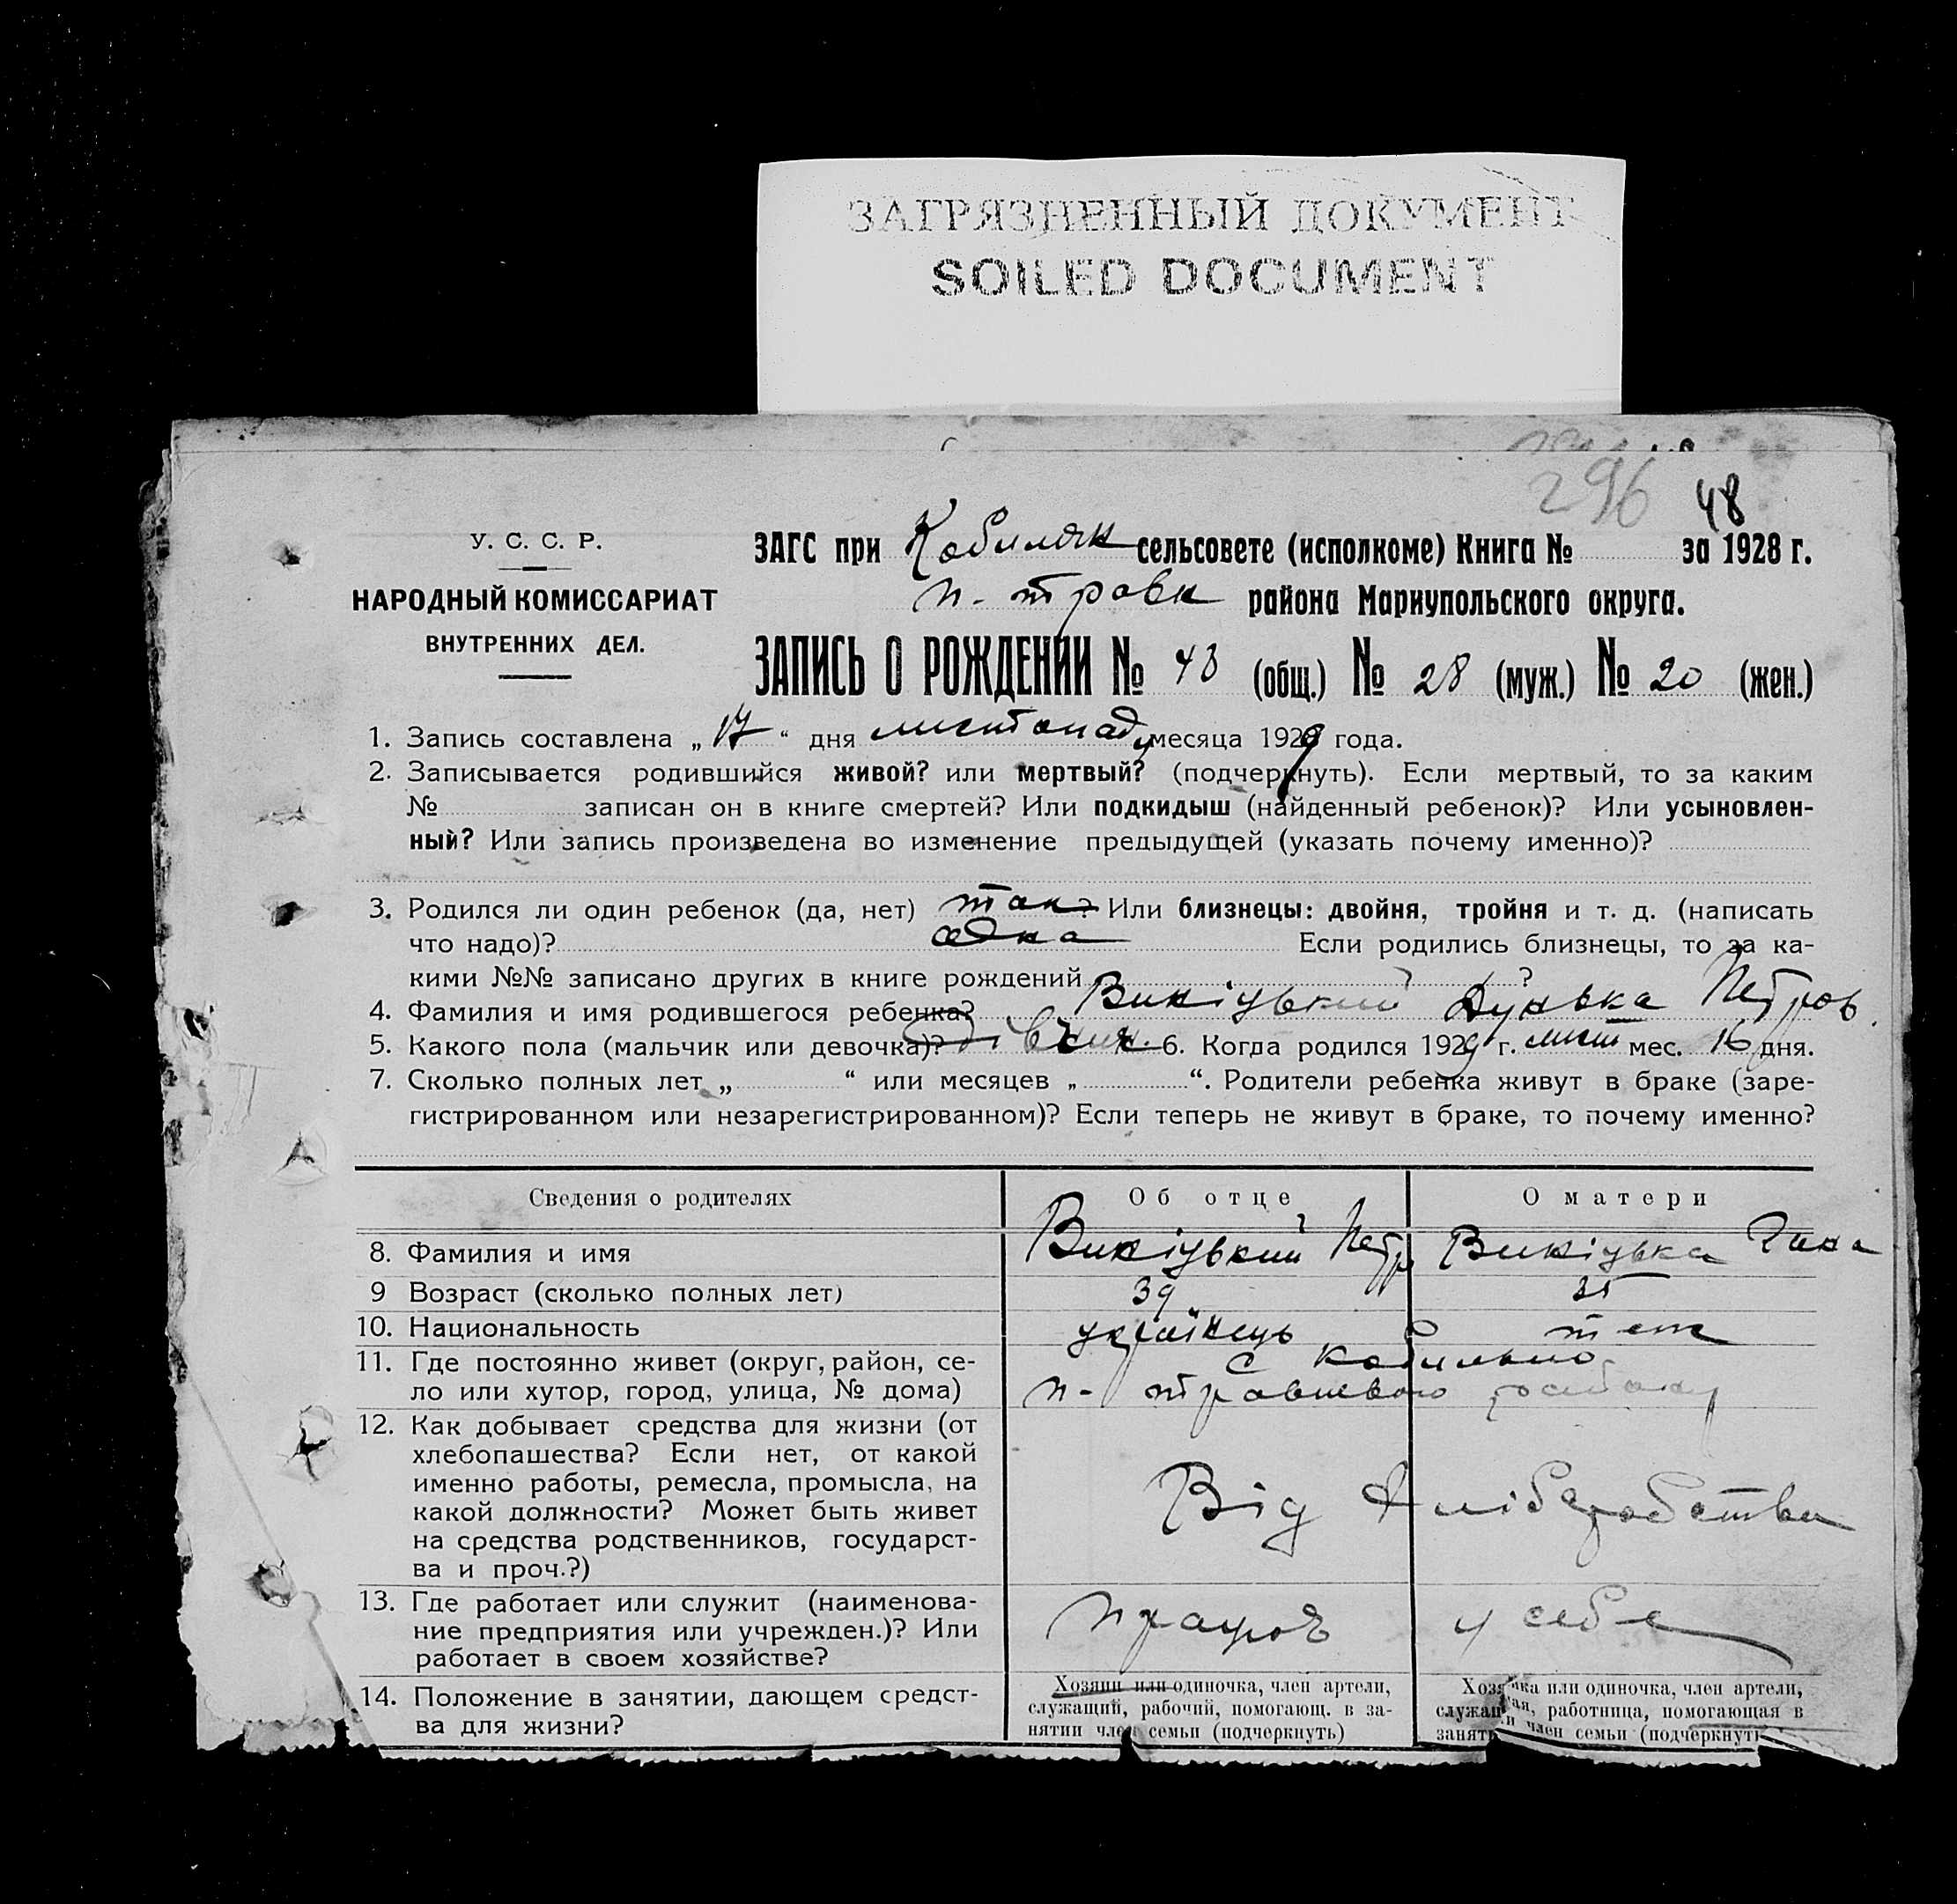 ЗАГРЯЗНЕННЫЙ ДОКУМЕНТ
SOILED DOCUMENT
296 48
У. С. С. Р.
НАРОДНЫЙ КОМИССАРИАТ
ВНУТРЕННИХ ДЕЛ.
ЗАГС при Кобиляк сельсовете (исполкоме) Книга № за 1928 г.
п- травн района Мариупольского округа.
ЗАПИСЬ О РОЖДЕНИИ № 43 (общ.) № 28 (муж.) № 20 (жен.)
1. Запись составлена „ 17 “ дня листопаду месяца 1929 года.
2. Записывается родившийся живой? или мертвый? (подчеркнуть). Если мертвый, то за каким
№ записан он в книге смертей? Или подкидыш (найденный ребенок)? Или усыновлен-
ный? Или запись произведена во изменение предыдущей (указать почему именно)?
3. Родился ли один ребенок (да, нет) так? Или близнецы: двойня, тройня и т. д. (написать
что надо)? одна Если родились близнецы, то за ка-
кими №№ записано других в книге рождений ?
4. Фамилия и имя родившегося ребенка? Петров
5. Какого пола (мальчик или девочка)? дівчин 6. Когда родился 1929 г. лист мес. 16 дня.
7. Сколько полных лет „ “ или месяцев „ “. Родители ребенка живут в браке (заре-
гистрированном или незарегистрированном)? Если теперь не живут в браке, то почему именно?
Сведения о родителях Об отце О матери
8. Фамилия и имя Петр
9 Возраст (сколько полных лет) 39 35
10. Национальность українець теж
11. Где постоянно живет (округ, район, се- с
ло или хутор, город, улица, № дома) п- травневого
12. Как добывает средства для жизни (от
хлебопашества? Если нет, от какой
именно работы, ремесла, промысла, на Від хліборобства
какой должности? Может быть живет
на средства родственников, государст-
ва и проч.?)
13. Где работает или служит (наименова-
ние предприятия или учрежден.)? Или працює у себе
работает в своем хозяйстве?
14. Положение в занятии, дающем средст-
ва для жизни?
Хозяин или одиночка, член артели,
служащий, рабочий, помогающ. в за-
нятии член семьи (подчеркнуть)
Хозяйка или одиночка, член артели,
служащая, работница, помогающая в
занятии член семьи (подчеркнуть